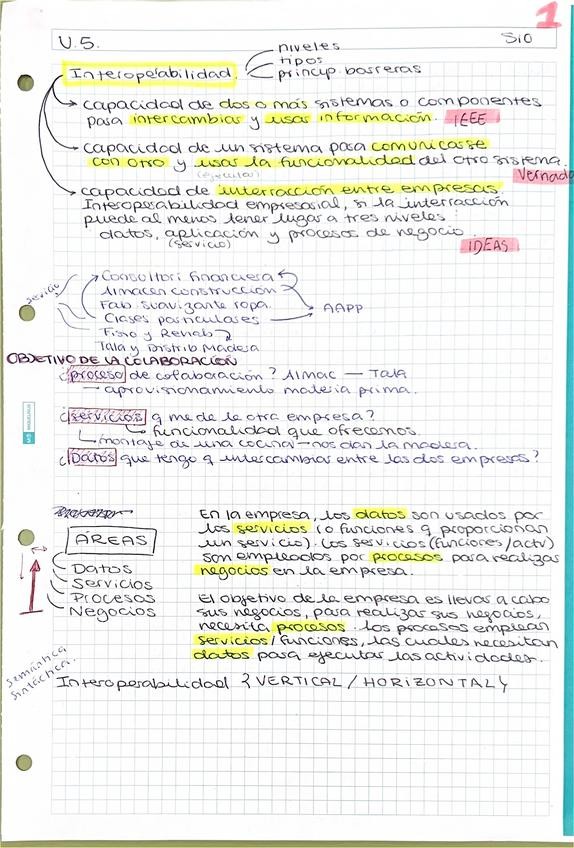 1
U.5. SIO
niveles
tipos
Interoperabilidad. princip. barreras
capacidad de dos o más sistemas o componentes
para intercambiar y usar información. IEEE
capacidad de un sistema para comunicarse
con otro y usar la funcionalidad del otro sistema.
(ejecutar) Vernadat
capacidad de interracción entre empresas.
Interoperabilidad empresarial, si la interracción
puede al menos tener lugar a tres niveles:
datos, aplicación y procesos de negocio.
(servicio) IDEAS
Consultorí financiera
servicio Almacen construcción
Fab suavizante ropa. AAPP
Clases particulares
Fisio y Rehab
Tala y Distrib Madera
OBJETIVO DE LA COLABORACIÓN
¿proceso de colaboración? Almac — Tala
aprovisionamiento materia prima.
¿servicios q me de la otra empresa?
funcionalidad que ofrecemos
montaje de una cocina — nos dan la madera.
¿Datos que tengo q intercambiar entre las dos empresas?
ÁREAS
Datos
Servicios
Procesos
Negocios
En la empresa, los datos son usados por
los servicios (o funciones q proporcionan
un servicio). Los servicios (funciones/activ)
son empleados por procesos para realizar
negocios en la empresa.
El objetivo de la empresa es llevar a cabo
sus negocios, para realizar sus negocios,
necesita procesos. los procesos emplean
servicios/funciones, las cuales necesitan
datos para ejecutar las actividades.
semántica
sintáctica.
Interoperabilidad {VERTICAL/HORIZONTAL}